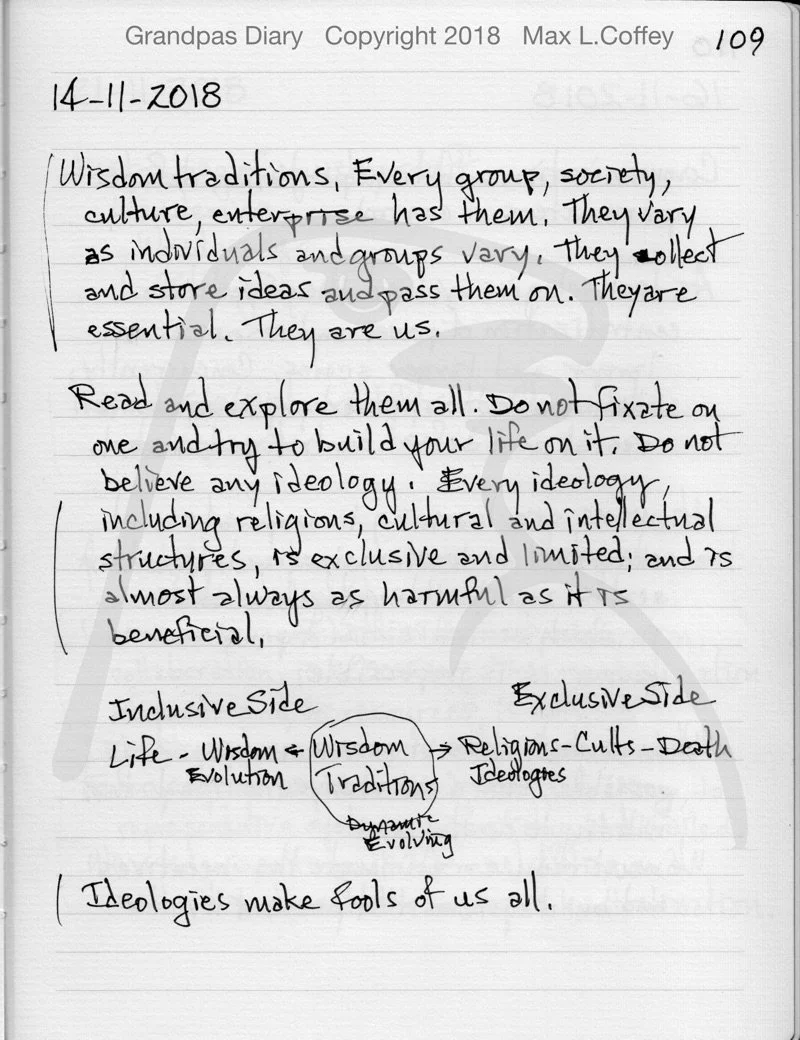 Grandpas Diary Copyright 2018 Max L.Coffey 109
14-11-2018
Wisdom traditions. Every group, society,
culture, enterprise has them. They vary
as individuals and groups vary. They collect
and store ideas and pass them on. They are
essential. They are us.
Read and explore them all. Do not fixate on
one and try to build your life on it. Do not
believe any ideology. Every ideology,
including religions, cultural and intellectual
structures, is exclusive and limited; and is
almost always as harmful as it is
beneficial.
Inclusive Side Exclusive Side
Life - Wisdom ← Wisdom → Religions - Cults - Death
Evolution Traditions Ideologies
Dynamic
Evolving
Ideologies make fools of us all.